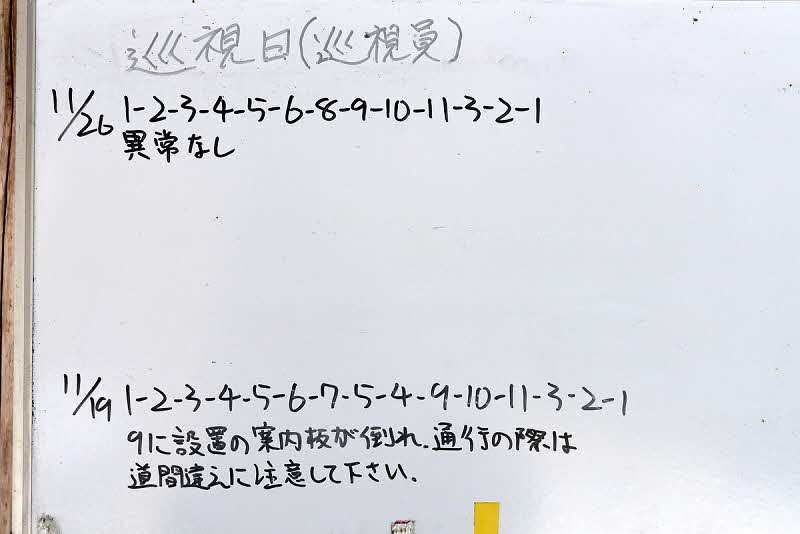 巡視日(巡視員)
11/26 1-2-3-4-5-6-8-9-10-11-3-2-1
異常なし
11/19 1-2-3-4-5-6-7-5-4-9-10-11-3-2-1
9に設置の案内板が倒れ、通行の際は
道間違えに注意して下さい.